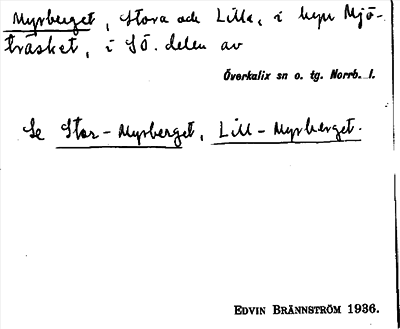 Myrberget, Stora och Lilla, i byn Mjö-
träsket, i SÖ. delen av
Överkalix sn o. tg. Norrb. l.
Se Stor-Myrberget, Lill-Myrberget.
EDVIN BRÄNNSTRÖM 1936.